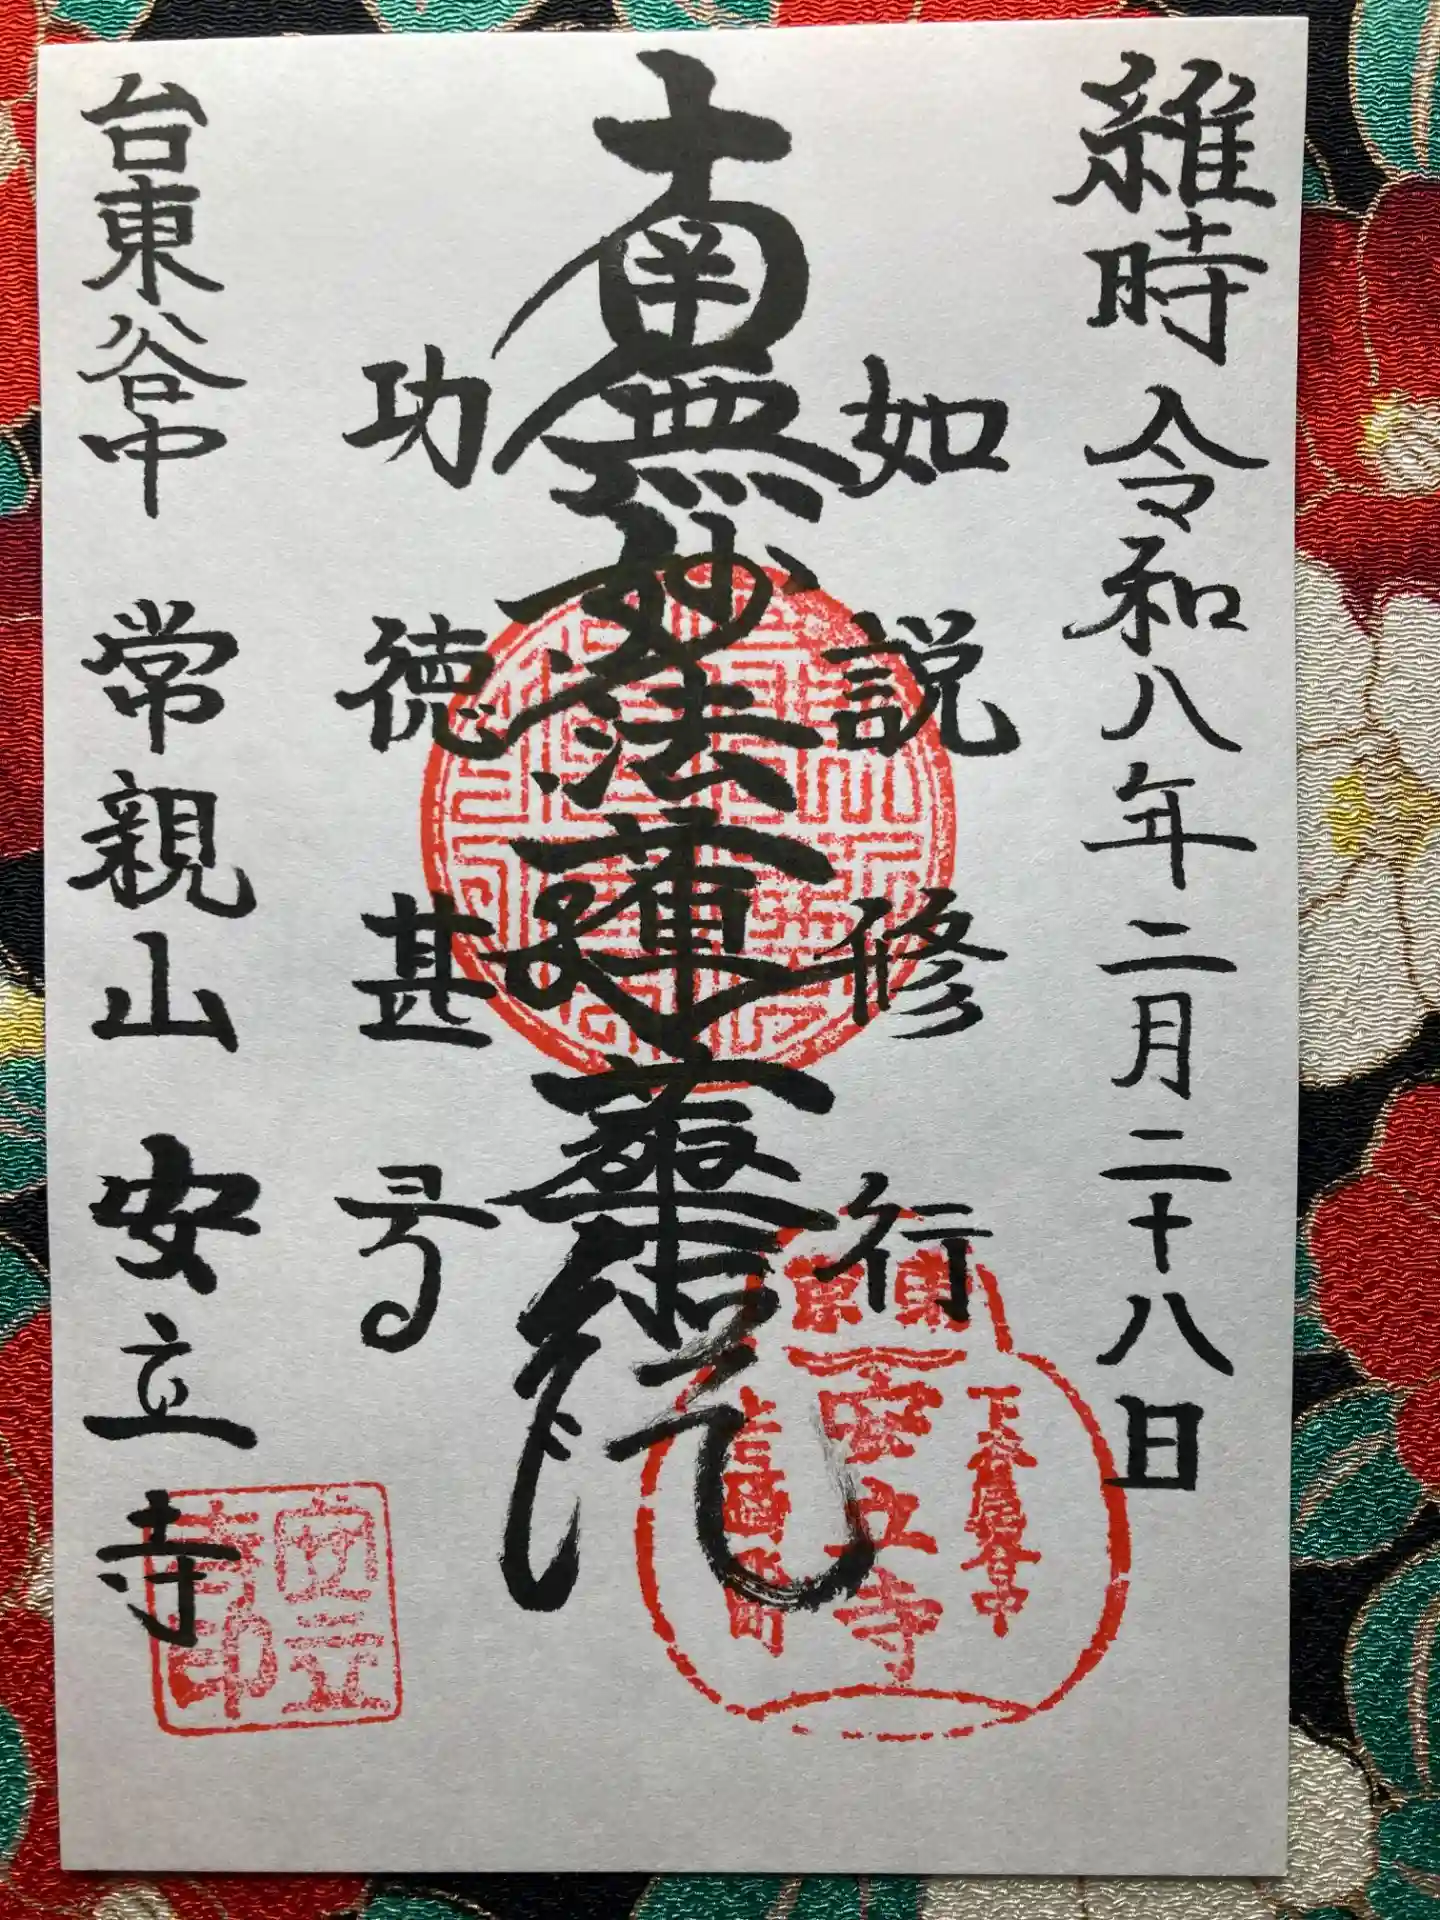 維時 令和八年二月二十八日
如説修行
南無妙法蓮華経
功徳甚多
台東谷中 常親山 安立寺
安立寺
安立寺印